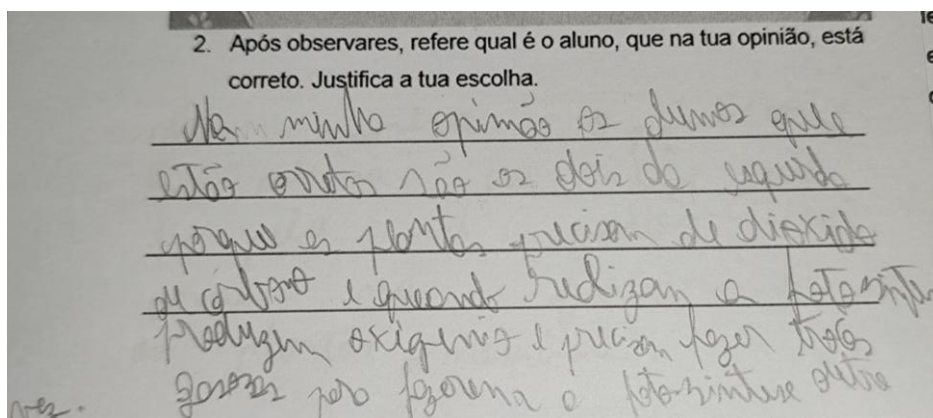 2. Após observares, refere qual é o aluno, que na tua opinião, está
correto. Justifica a tua escolha.
Na minha opinião os alunos que
estão corretos são os dois da esquerda
porque as plantas precisam de dioxido
de carbono e quando realizam a fotosinte
produzem oxigenio e precisam fazer trocas
gasosas para fazerem a fotosintese outra
vez.